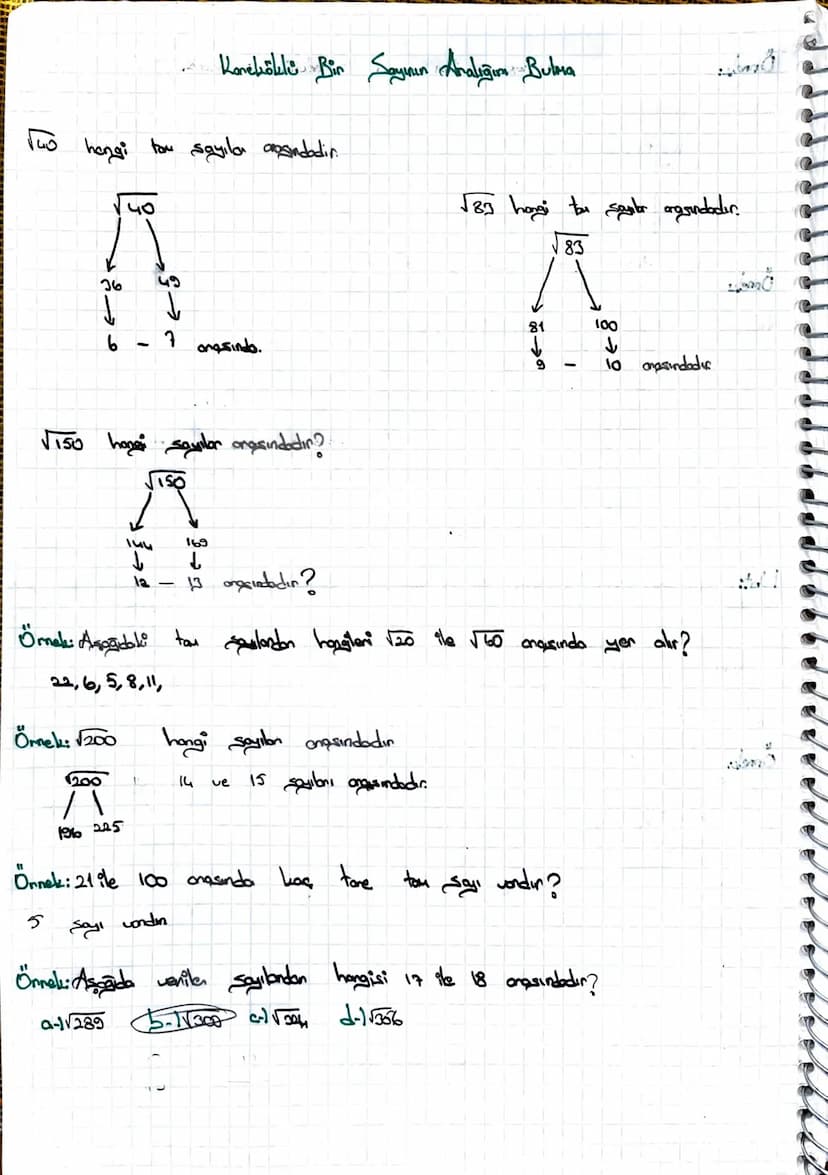 Kareköklü Bir Sayının Aralığını Bulma
√40 hangi tam sayılar arasındadır.
√40
36 49
6 - 7 arasında.
√83 hangi tam sayılar arasındadır.
√83
81 100
9 - 10 arasındadır
√150 hangi sayılar arasındadır?
√150
144 169
12 - 13 arasındadır?
Örnek: Aşağıdaki tam sayılardan hangileri √20 ile √60 arasında yer alır?
22, 6, 5, 8, 11,
Örnek: √200 hangi sayıları arasındadır
√200
14 ve 15 sayıları arasındadır.
196 225
Örnek: 21 ile 100 arasında kaç tane tam sayı vardır?
5 sayı vardır
Örnek: Aşağıda verilen sayılardan hangisi 17 ile 18 arasındadır?
a-)√289 b-)√300 c-)√324 d-)√356